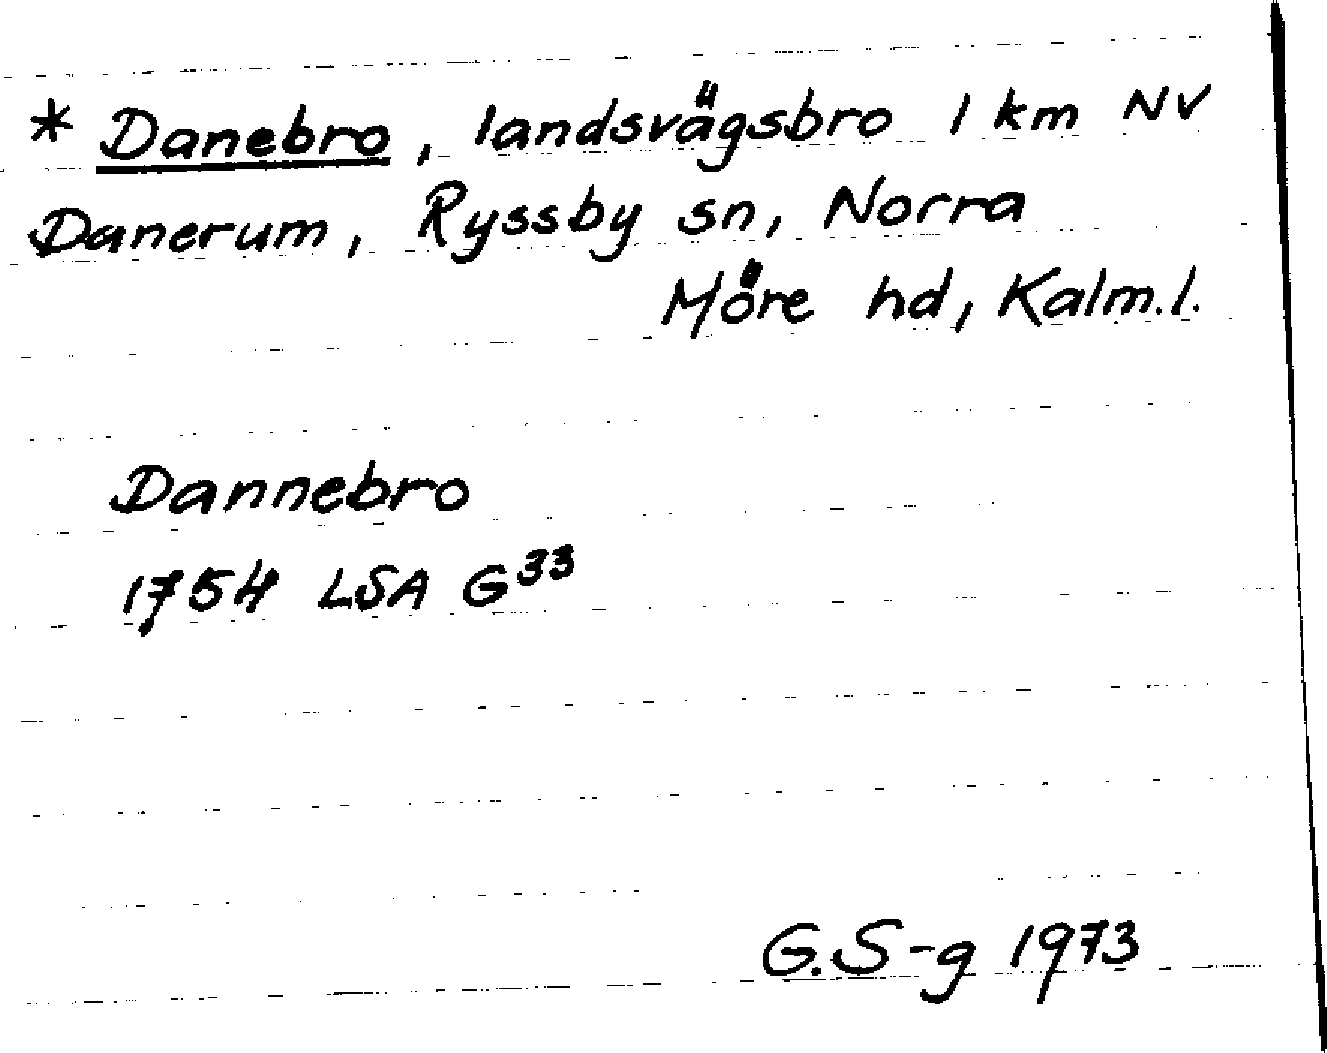 * Danebro, landsvägsbro 1 km NV
Danerum, Ryssby sn, Norra
Möre hd, Kalm.l.
Dannebro
1754 LSA G³³
G.S-g 1973